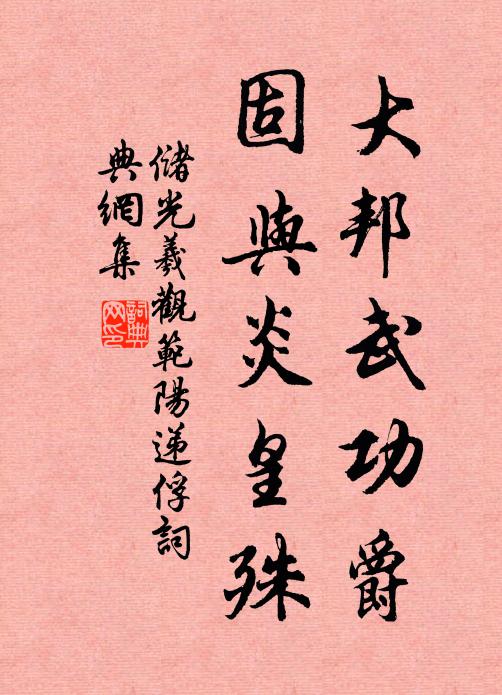 大邦武功爵
固與炎皇殊
儲光羲觀範陽遞俘詞
典網集
詞典网印